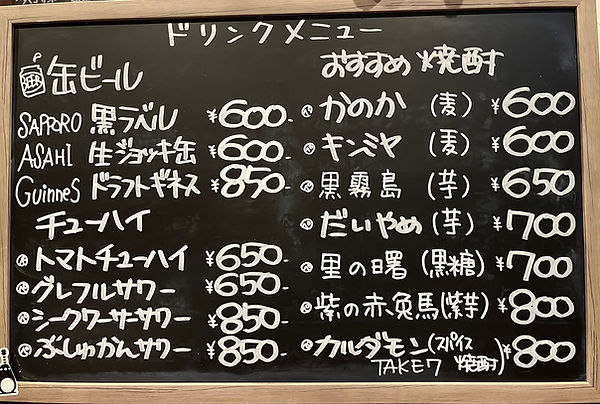 ドリンクメニュー
缶ビール
SAPPORO 黒ラベル ¥600
ASAHI 生ジョッキ缶 ¥600-
GuinneS ドラフトギネス ¥850-
チューハイ
トマトチューハイ ¥650-
グレフルサワー ¥650-
シークワーサーサワー ¥850-
ぶしゅかんサワー ¥850-
おすすめ 焼酎
かのか (麦) ¥600
キンミヤ (麦) ¥600
黒霧島 (芋) ¥650
だいやめ (芋) ¥700
里の曙 (黒糖) ¥700
紫の赤兎馬 (紫芋) ¥800
カルダモン (スパイス ¥800
TAKE7 焼酎)